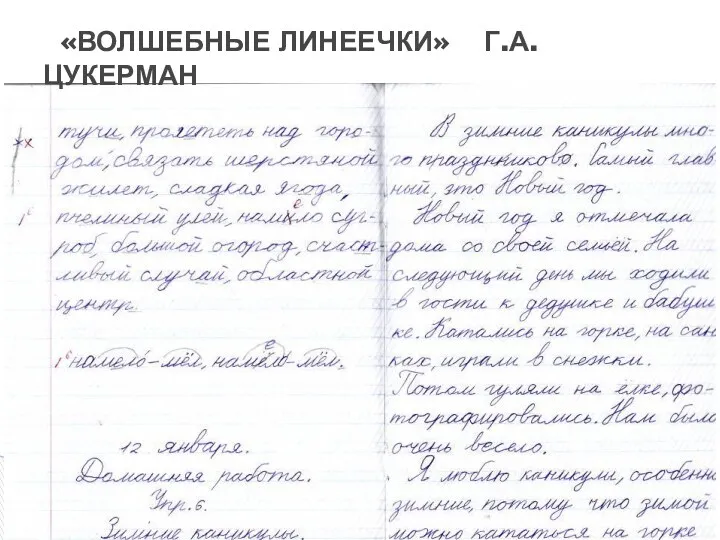 «ВОЛШЕБНЫЕ ЛИНЕЕЧКИ» Г.А.
ЦУКЕРМАН
тучи, пролететь над горо-
дом, связать шерстяной
жилет, сладкая ягода,
пчелиный улей, намело суг-
роб, большой огород, счаст-
ливый случай, областной
центр.
намело́ – мёл, намело – мёл.
12 января.
Домашняя работа.
Упр. 6.
Зимние каникулы.
В зимние каникулы мно-
го праздников. Самый глав
ный, это Новый год.
Новый год я отмечала
дома со своей семьёй. На
следующий день мы ходили
в гости к дедушке и бабуш
ке. Катались на горке, на сан
ках, играли в снежки.
Потом гуляли на ёлке, фо-
тографировались. Нам было
очень весело.
Я люблю каникулы, особенн
зимние, потому что зимой
можно кататься на горке